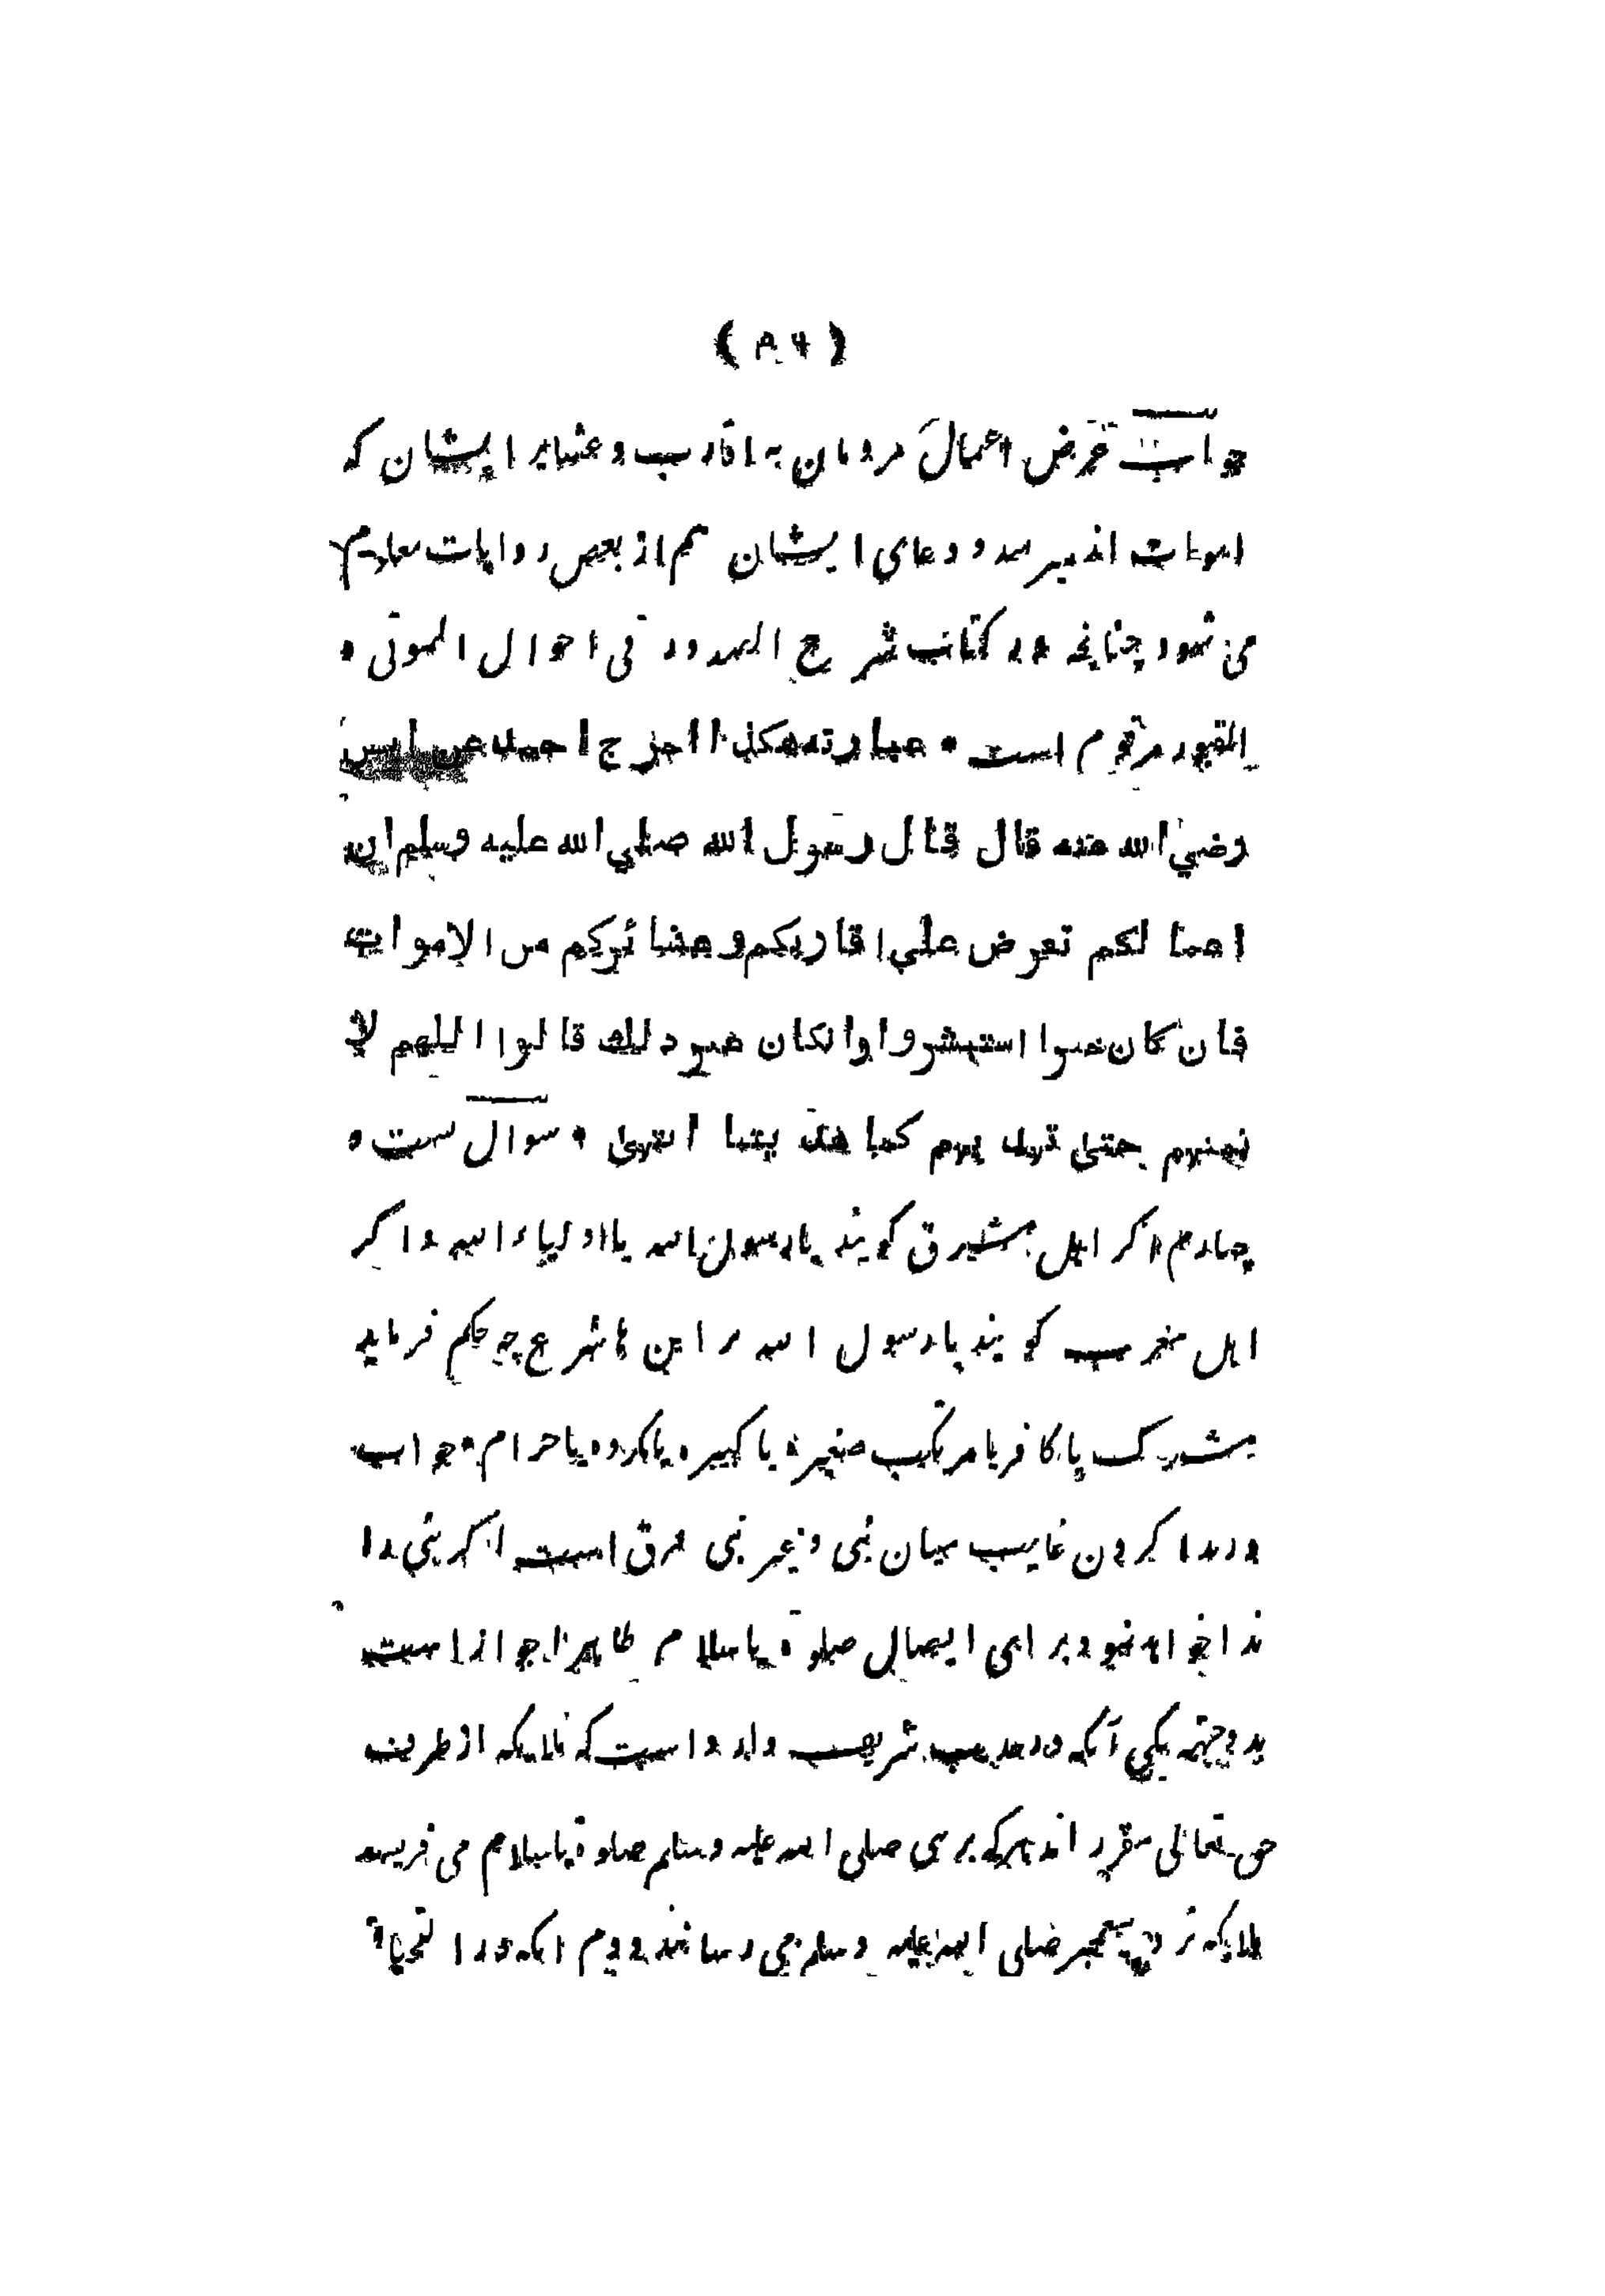 ( ۸۴ )
جواب عرض اعمال مردمان به اقارب و عشایر ایشان که
اموات اند میرسد و دعای ایشان هم از بعض روایات معلوم
می شود چنانچه در کتاب شرح الصدور فی احوال الموتی و
القبور مرقوم است * عبارته هکذا اخرج احمد عن انس
رضي الله عنه قال قال رسول الله صلي الله عليه وسلم ان
اعمالكم تعرض علي اقاربكم وعشائركم من الاموات
فان كان خيرا استبشروا وانكان غير ذلك قالوا اللهم لا
تمتهم حتي تهديهم كما هديتنا انتهي * سوال بست و
چهارم اگر اهل مشرق گویند یا رسول الله یا اولیاء الله و اگر
اهل مغرب گویند یا رسول الله مر این ها شرع چه حکم فرماید
مشرک یا کافر یا مرتکب صغیره یا کبیره یا مکروه یا حرام * جواب
در ندا کردن غایب میان نبی و غیر نبی فرق است اگر نبی را
ندا خواهد نمود برای ایصال صلوة یا سلام ظاهرا جواز است
بدو جهته یکی آنکه در حدیث شریف وارد است که ملایکه از طرف
حق تعالی مقرر اند هرکه بر نبی صلی الله علیه وسلم صلوة یا سلام می فریسد
ملایکه نزد پیغمبر صلی الله علیه وسلم می رسانند دویم آنکه در التحیاة